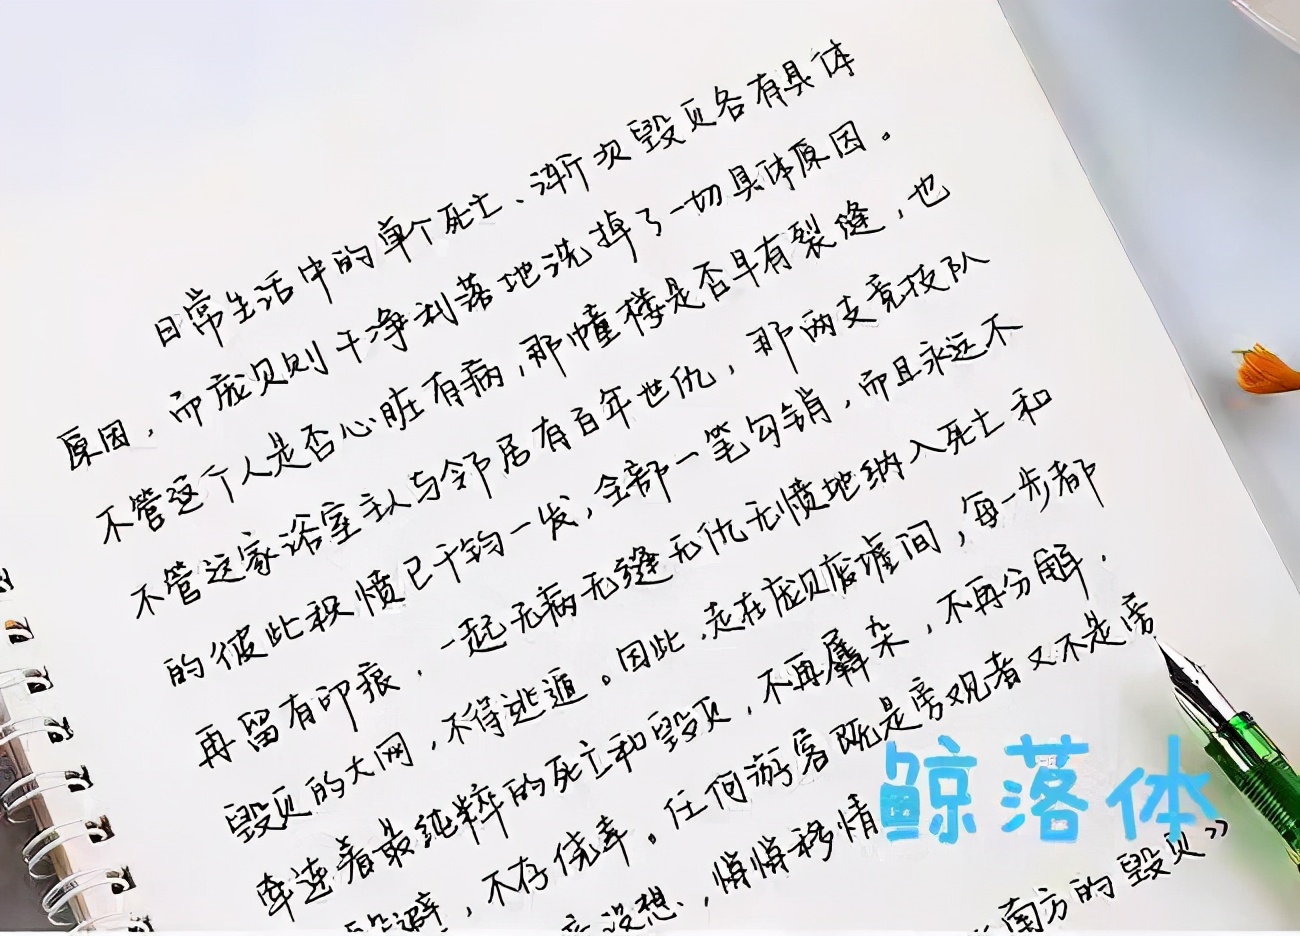 日常生活中的单个死亡、渐次毁灭各有具体
原因，而庞贝则干净利落地洗掉了一切具体原因。
不管这个人是否心脏有病，那幢楼是否早有裂缝，也
不管这家浴室主人与邻居有百年世仇，那两支竞技队
的彼此积愤已千钧一发，全部一笔勾销，而且永远不
再留有印痕，一起无病无缝无仇无愤地纳入死亡和
毁灭的大网，不得逃遁。因此，走在庞贝废墟间，每一步都
牵连着最纯粹的死亡和毁灭，不再羼杂，不再分解，
避，不存侥幸。任何游客既是旁观者又不是旁
没想，悄悄移情
南方的毁灭》
鲸落体